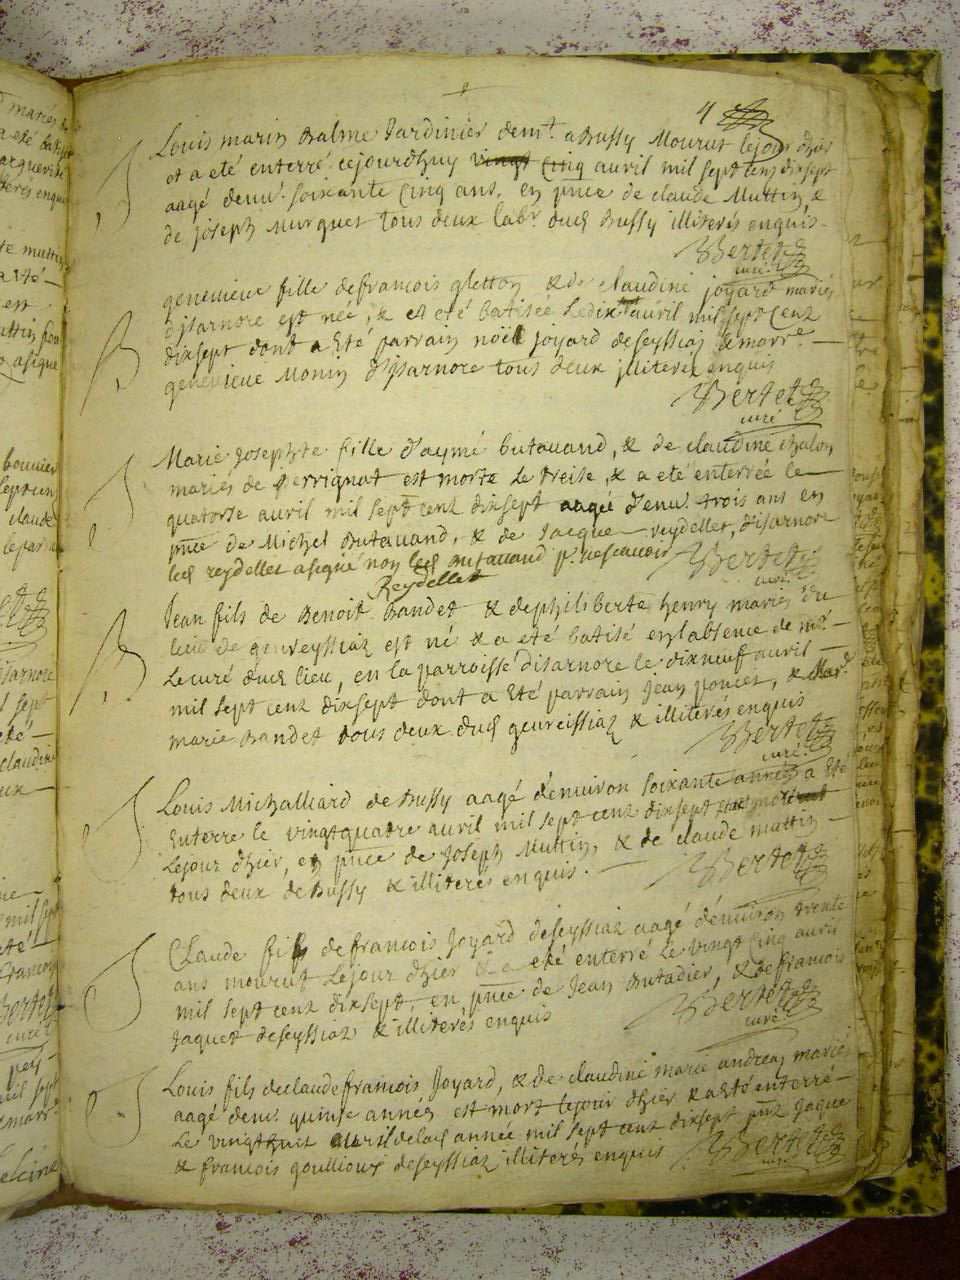 4
S Louis marin Balme Jardinier dem.t a Bussy Mourut lejour dhier
et a eté enterré cejourdhuy vingt Cinq avril mil sept cens dixsept
aagé denu. soixante Cinq ans, en pnce de claude Muttin, &
de joseph Murquet tous deux lab.r dud Bussy illiterés enquis.
Bertet
curé
B genevieve fille defrancois gletton & de claudine joyard mariés
djsarnore est née, & et eté batisée Ledix avril mil sept cent
dixsept dont a Eté parrain noël joyard deseyssiaz & marr.e —
genevieve Monin d'jsarnore tous deux jlliterez enquis
Bertet
curé
S Marie josephte fille d'aymé butavand, & de claudine chalon,
mariés de perrignat est morte Le treise, & a eté enterrée le —
quatorse avril mil sept cent dixsept aagée d'enu. trois ans en
pnce de Michel Butavand, & de Jacque reydellet, d'isarnore
led reydellet asigné non led Butavand p. nescavoir
Reydellet
Bertet
curé
B Jean fils de Benoit Bandet & dephiliberte henry mariés du
lieu de genreyssiaz est né & a eté batisé en labsence de m.r —
Lecuré dud lieu, en la parroisse disarnore le dixneuf avril —
mil sept cent dixsept dont a Eté parrain jean poncet, & Mar.e
marie Bandet tous deux dud geureissiaz & illiterés enquis
Bertet
curé
S Louis Michalliard de Bussy aagé d'enuiron soixante années a Eté
Enterré le vingtquatre avril mil sept cent dixsept
Lejour dhier, en pnce de Joseph Muttin, & de claude muttin —
tous deux de Bussy & illiterés enquis. —
Bertet
S Claude fils defrancois Joyard deseyssiaz aagé d'enuiron trente
ans mourut Lejour dhier & a eté enterré Le vingt Cinq avril
mil sept cent dixsept, en pnce de Jean Butadier, & de francois
Jaquet deseyssiaz & illiterés enquis
Bertet
curé
S Louis fils declaudefrancois Joyard, & de claudine marie andrea mariés
aagé denu. quinse années est mort lejour dhier & a Eté enterré —
Le vingthuit avril delad année mil sept cent dixsept pnt Jaque
& francois goullioux deseyssiaz illiterés enquis
Bertet